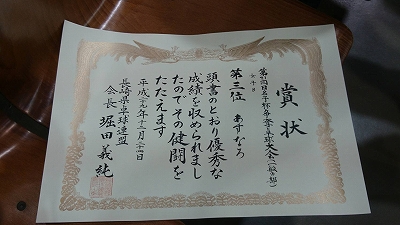 賞状
杯冬季卓球大会
第三位 あすなろ
頭書のとおり優秀な
成績を収められまし
たのでその健闘を
たたえます
平成二十九年十二月二十四日
長崎県卓球連盟
会長 堀田義純